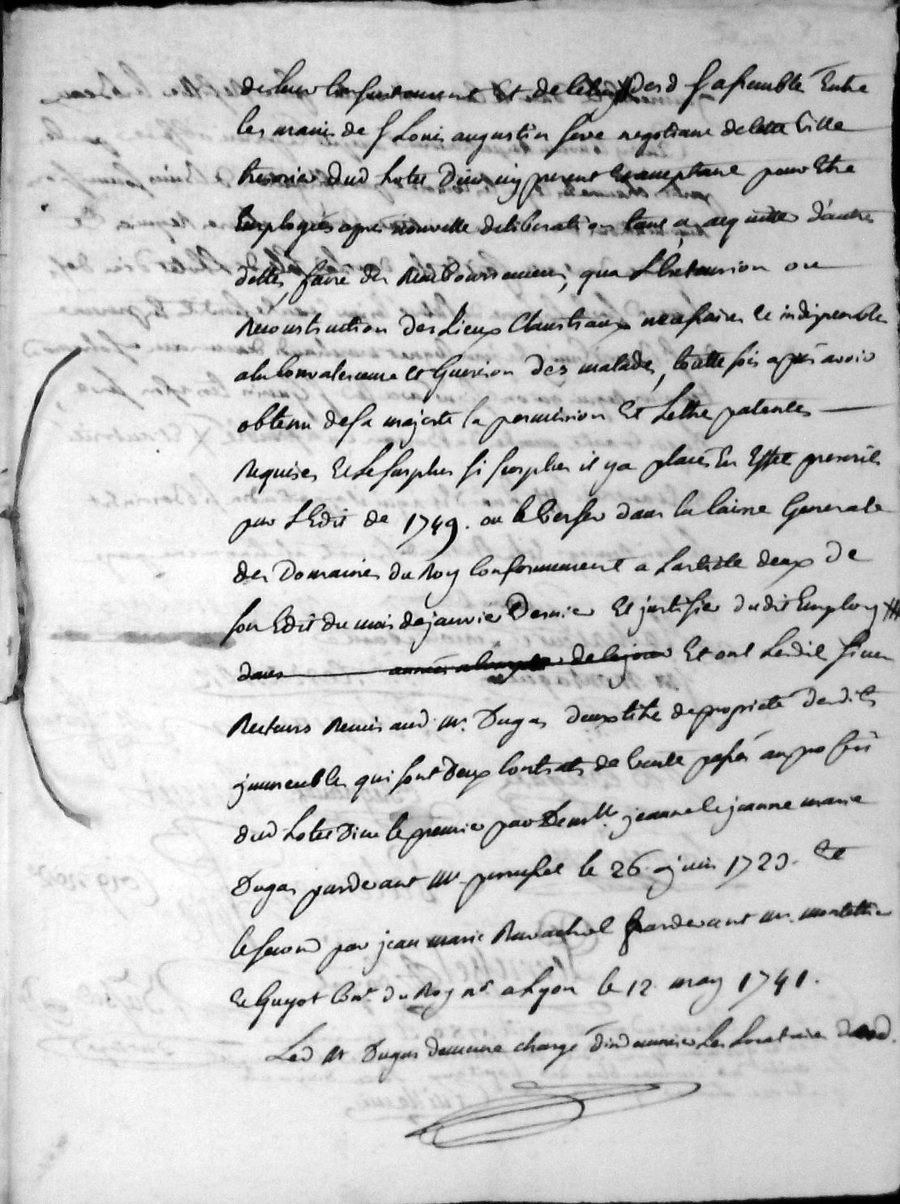 de leur consentement et de celuy Desd Sr assemblé Entre
les mains de Sr Louis augustin seve negotiant de cette Ville
tresorier dud hotel Dieu icy present et acceptant pour Etre
Employés apres nouvelle deliberation tant a acquitter d'autres
dettes, faire des Remboursements, qua L'extension ou
Reconstruction des Lieux Claustraux necessaires et indispensable
a la Convalescence et Guerison des malades, toutte fois apres avoir
obtenu de sa majesté la permission Et Lettre patentes
Requises et Le surplus si surplus il y a placés En Effet prescrits
par L'Edit de 1749. ou le verser dans la Caisse Generale
des Domaines du Roy Conformement a Larticle deux de
son Edit du mois de janvier Dernier Et justifier dudit Employ
dans années a compter de ce jour Et ont Lesdits Sieurs
Recteurs Remis aud Mr. Dugas deux titre de propriété desdits
jmmeubles qui sont Deux Contrats de Vente passés au proffit
dud hotel Dieu le premier par Demlle jeanne et jeanne marie
Dugas pardevant Me perrichel le 26 juin 1723. Et
le second par jean marie Ravachol pardevant Mr. montellier
Et Guyot Cer. du Roy nre a Lyon le 12 may 1741.
Led Mr Dugas demeure chargé d'indemniser Les Locataires dud.